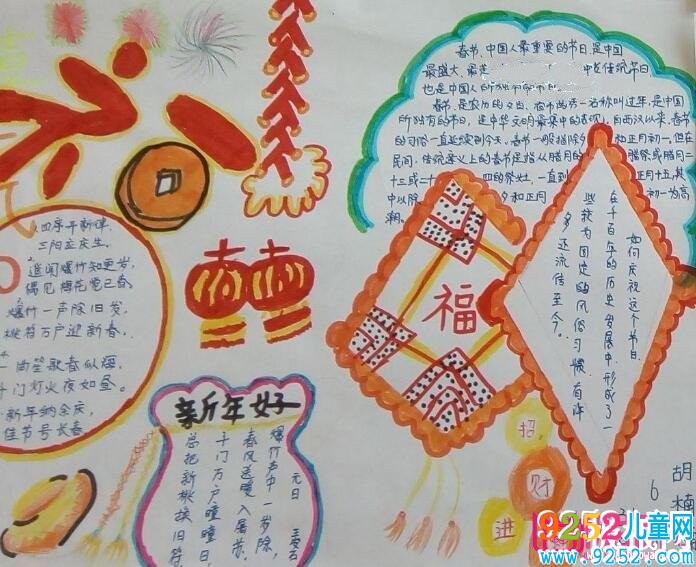 春节,中国人最重要的节日,是中国
最盛大、最
也是中国人所独有的节日。
春节,是农历的
所独有的节日,是中华文明最集中的表现。自西汉以来,春节
的习俗一直延续到今天。春节一般指除夕和正月初一。但在
民间,传统意义上的春节是指从腊月的 腊祭或腊月二
十三或二十四的祭灶,一直到 正月十五,其
中以除夕和正月初一为高
潮。
如何庆祝这个节日,
在千百年的历史发展中,形成了一
些较为固定的风俗习惯,有许
多还流传至今。
福
三阳
遥闻爆竹知更岁,
偶见梅花觉已春
爆竹一声除旧岁,
桃符万户迎新春。
一曲笙歌春似海
千门灯火夜如昼。
新年纳余庆
佳节号长春
新年好
元日
爆竹声中一岁除,
春风送暖入屠苏。
千门万户曈曈日,
总把新桃换旧符
招
财
进
胡
楠
6
9252儿童网
www.9252.com